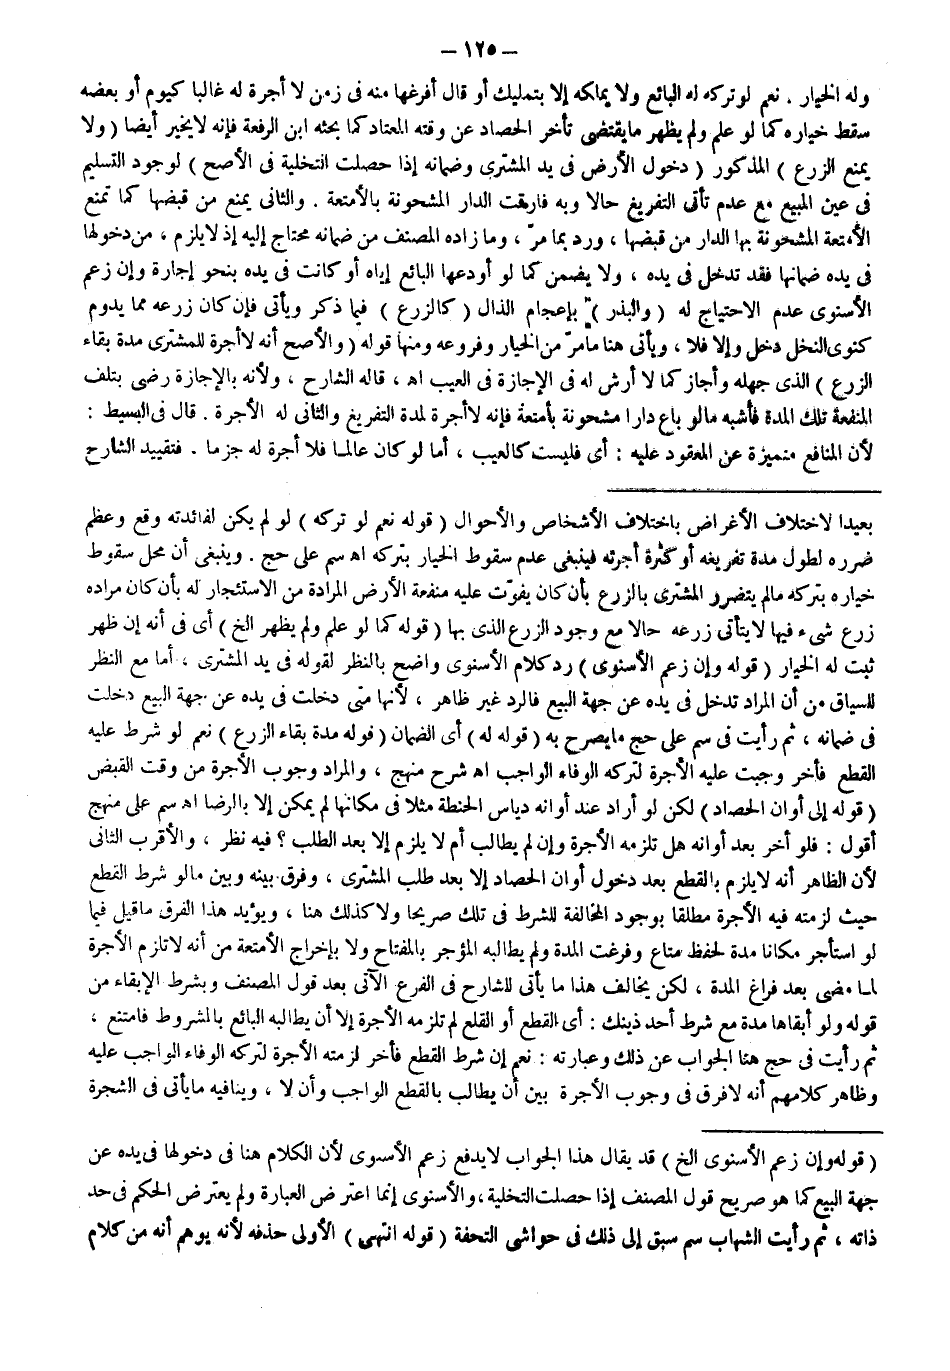 — ١٢٥ —
وله الخيار . نعم لو تركه له البائع ولا يملكه إلا بتمليك أو قال أفرغها منه فى زمن لا أجرة له غالبا كيوم أو بعضه
سقط خياره كما لو علم ولم يظهر مايقتضى تأخر الحصاد عن وقته المعتاد كما بحثه ابن الرفعة فإنه لايخير أيضا ( ولا
يمنع الزرع ) المذكور ( دخول الأرض فى يد المشترى وضمانه إذا حصلت التخلية فى الأصح ) لوجود التسليم
فى عين المبيع مع عدم تأتى التفريغ حالا وبه فارقت الدار المشحونة بالأمتعة . والثانى يمنع من قبضها كما تمنع
الأمتعة المشحونة بها الدار من قبضها ، ورد بما مرّ ، وما زاده المصنف من ضمانه محتاج إليه إذ لايلزم ، من دخولها
فى يده ضمانها فقد تدخل فى يده ، ولا يضمن كما لو أودعها البائع إياه أو كانت فى يده بنحو إجارة وإن زعم
الأسنوى عدم الاحتياج له ( والبذر ) بإعجام الذال ( كالزرع ) فيما ذكر ويأتى فإن كان زرعه مما يدوم
كنوى النخل دخل وإلا فلا ، ويأتى هنا مامرّ من الخيار وفروعه ومنها قوله ( والأصح أنه لاأجرة للمشترى مدة بقاء
الزرع ) الذى جهله وأجاز كما لا أرش له فى الإجازة فى العيب اه ، قاله الشارح ، ولأنه بالإجازة رضى بتلف
المنفعة تلك المدة فأشبه مالو باع دارا مشحونة بأمتعة فإنه لاأجرة لمدة التفريغ والثانى له الأجرة . قال فى البسيط :
لأن المنافع متميزة عن المعقود عليه : أى فليست كالعيب ، أما لو كان عالما فلا أجرة له جزما . فتقييد الشارح
بعيدا لاختلاف الأغراض باختلاف الأشخاص والأحوال ( قوله نعم لو تركه ) لو لم يكن لفائدته وقع وعظم
ضرره لطول مدة تفريغه أو كثرة أجرته فينبغى عدم سقوط الخيار بتركه اه سم على حج . وينبغى أن محل سقوط
خياره بتركه مالم يتضرر المشترى بالزرع بأن كان يفوّت عليه منفعة الأرض المرادة من الاستئجار له بأن كان مراده
زرع شىء فيها لايتأتى زرعه حالا مع وجود الزرع الذى بها ( قوله كما لو علم ولم يظهر الخ ) أى فى أنه إن ظهر
ثبت له الخيار ( قوله وإن زعم الأسنوى ) رد كلام الأسنوى واضح بالنظر لقوله فى يد المشترى ، أما مع النظر
للسياق من أن المراد تدخل فى يده عن جهة البيع فالرد غير ظاهر ، لأنها متى دخلت فى يده عن جهة البيع دخلت
فى ضمانه ، ثم رأيت فى سم على حج مايصرح به ( قوله له ) أى الضمان ( قوله مدة بقاء الزرع ) نعم لو شرط عليه
القطع فأخر وجبت عليه الأجرة لتركه الوفاء الواجب اه شرح منهج ، والمراد وجوب الأجرة من وقت القبض
( قوله إلى أوان الحصاد ) لكن لو أراد عند أوانه دياس الحنطة مثلا فى مكانها لم يمكن إلا بالرضا اه سم على منهج
أقول : فلو أخر بعد أوانه هل تلزمه الأجرة وإن لم يطالب أم لا يلزم إلا بعد الطلب ؟ فيه نظر ، والأقرب الثانى
لأن الظاهر أنه لايلزم بالقطع بعد دخول أوان الحصاد إلا بعد طلب المشترى ، وفرق بينه وبين مالو شرط القطع
حيث لزمته فيه الأجرة مطلقا بوجود المخالفة للشرط فى تلك صريحا ولا كذلك هنا ، ويؤيد هذا الفرق ماقيل فيما
لو استأجر مكانا مدة لحفظ متاع وفرغت المدة ولم يطالبه المؤجر بالمفتاح ولا بإخراج الأمتعة من أنه لاتلزم الأجرة
لما مضى بعد فراغ المدة ، لكن يخالف هذا ما يأتى للشارح فى الفرع الآتى بعد قول المصنف وبشرط الإبقاء من
قوله ولو أبقاها مدة مع شرط أحد ذينك : أى القطع أو القلع لم تلزمه الأجرة إلا أن يطالبه البائع بالمشروط فامتنع ،
ثم رأيت فى حج هنا الجواب عن ذلك وعبارته : نعم إن شرط القطع فأخر لزمته الأجرة لتركه الوفاء الواجب عليه
وظاهر كلامهم أنه لافرق فى وجوب الأجرة بين أن يطالب بالقطع الواجب وأن لا ، وينافيه مايأتى فى الشجرة
( قوله وإن زعم الأسنوى الخ ) قد يقال هذا الجواب لايدفع زعم الأسنوى لأن الكلام هنا فى دخولها فى يده عن
جهة البيع كما هو صريح قول المصنف إذا حصلت التخلية ، والأسنوى إنما اعترض العبارة ولم يعترض الحكم فى حد
ذاته ، ثم رأيت الشهاب سم سبق إلى ذلك فى حواشى التحفة ( قوله انتهى ) الأولى حذفه لأنه يوهم أنه من كلام